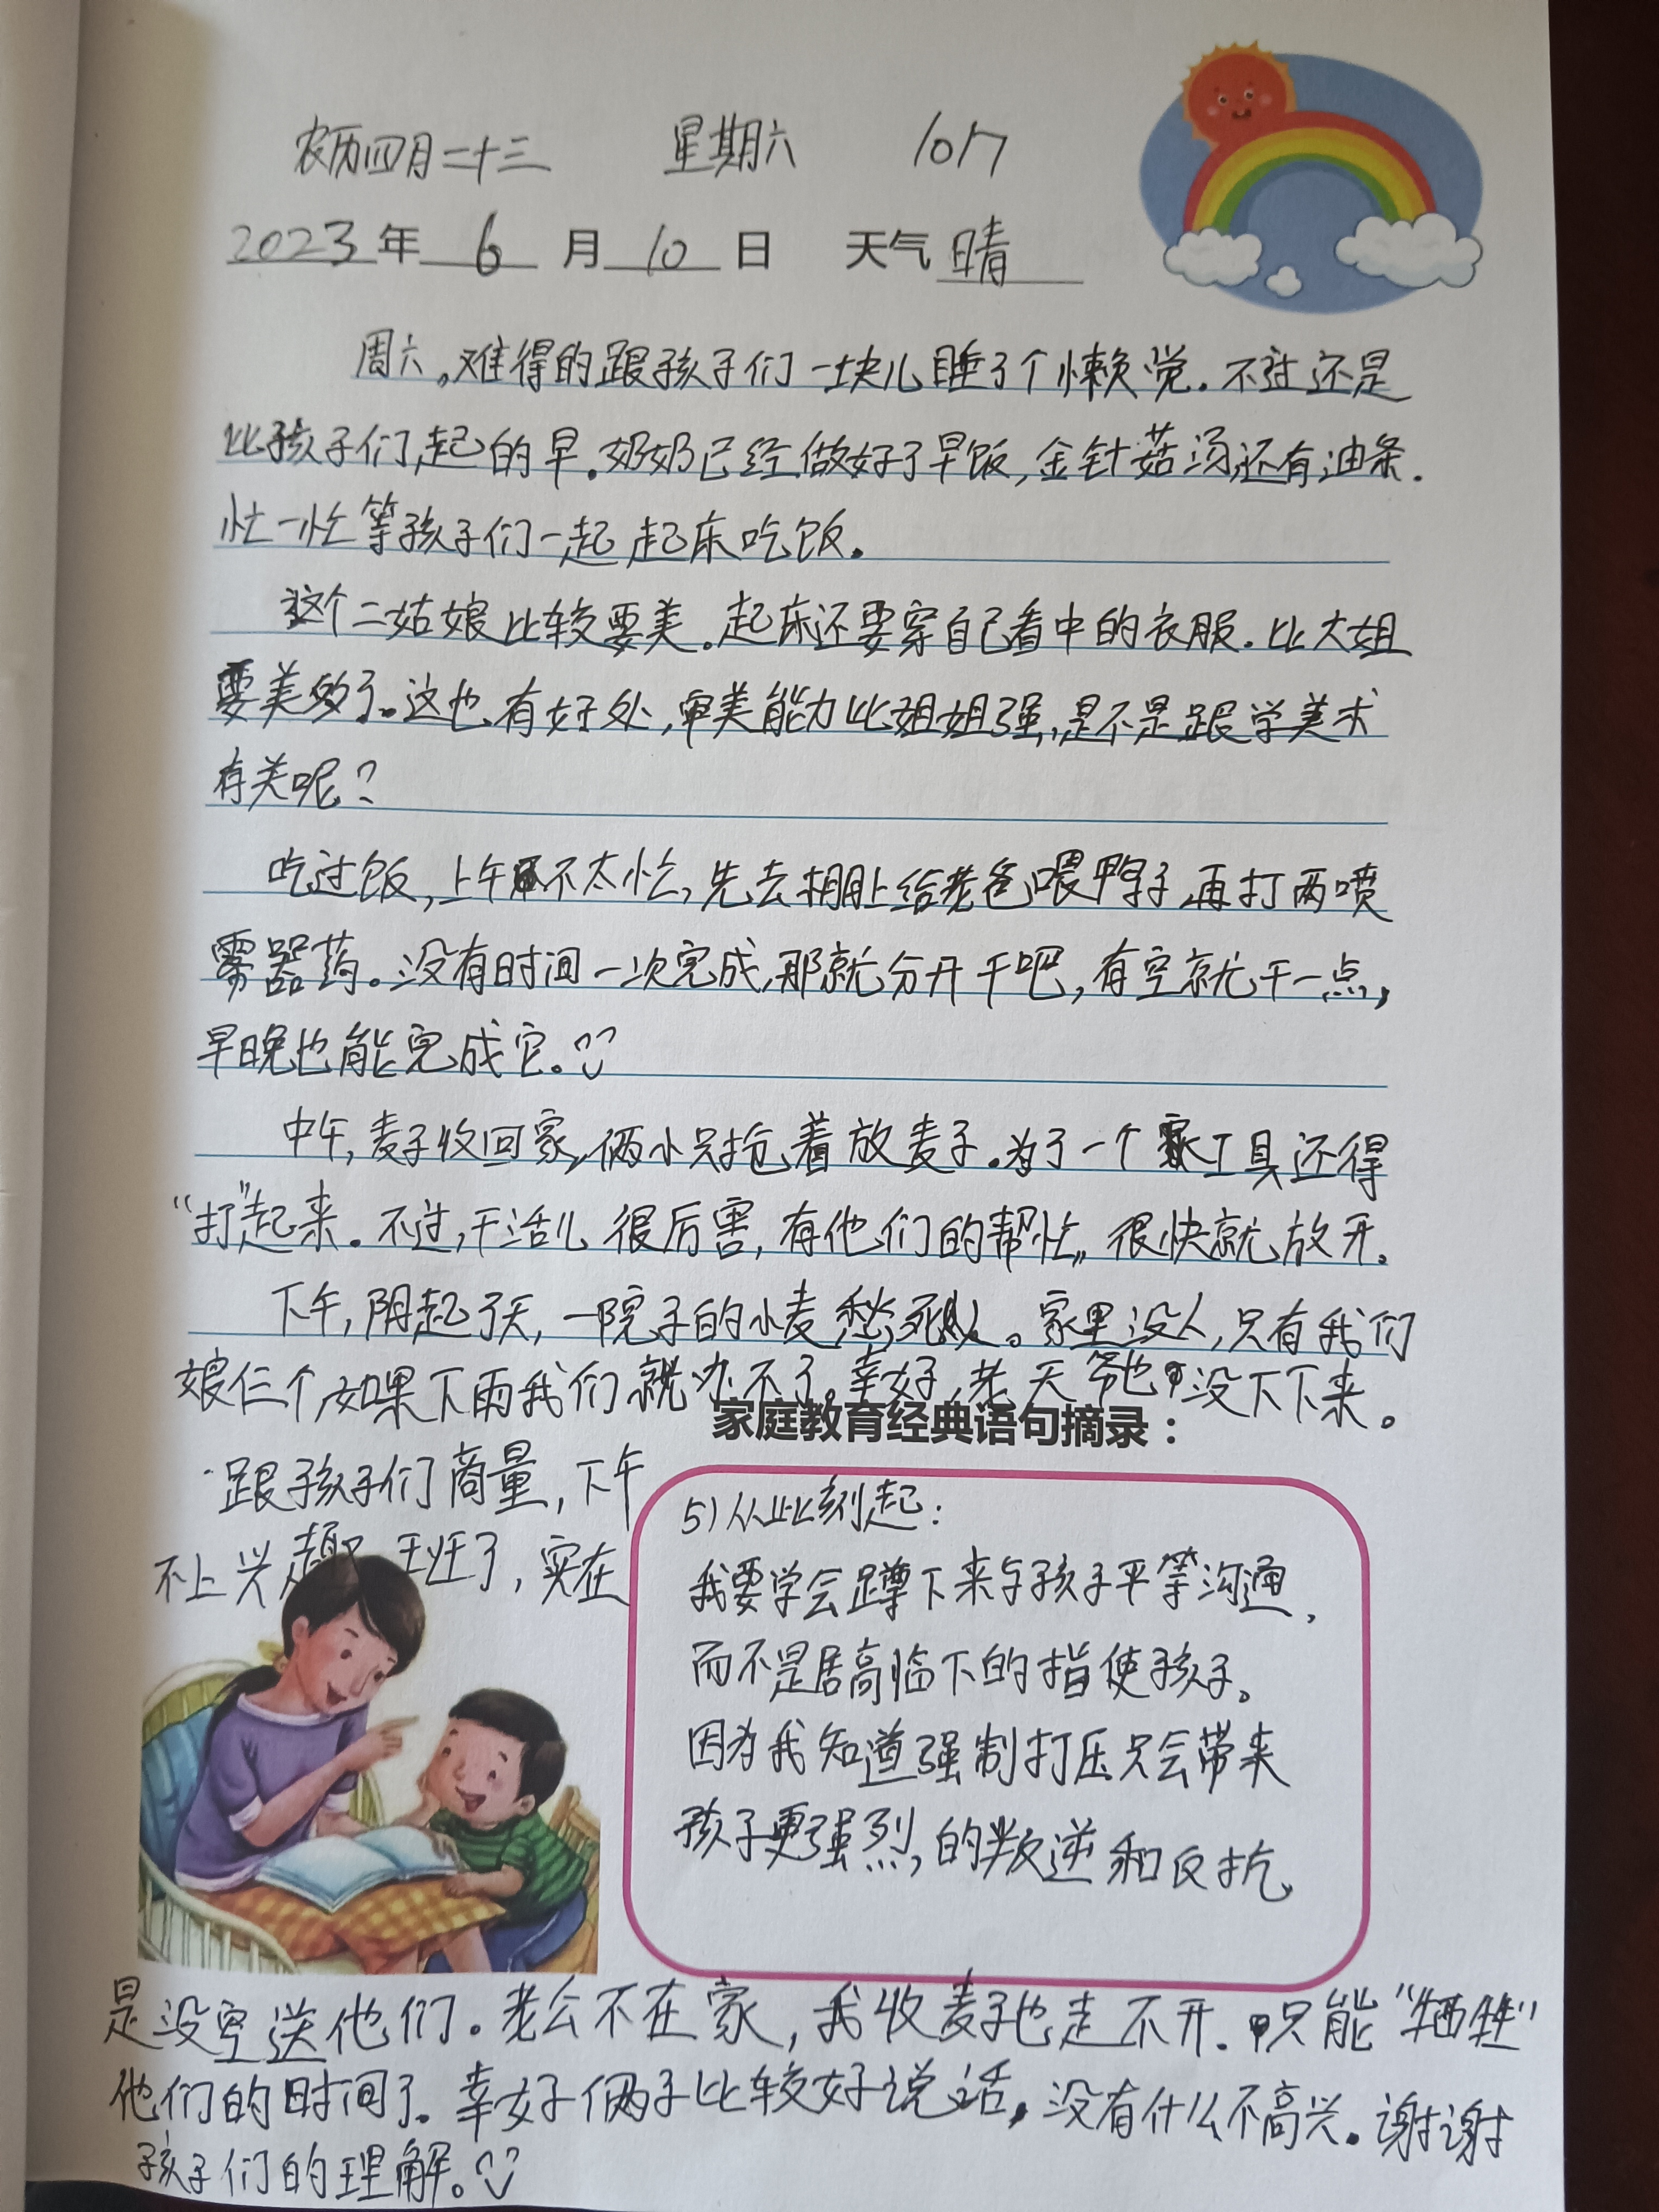 农历四月二十三 星期六 107
2023年 6 月 10 日 天气 晴
周六。难得的跟孩子们一块儿睡了个懒觉.不过还是
比孩子们起的早.奶奶已经做好了早饭,金针菇汤还有油条.
忙一忙等孩子们一起起床吃饭。
这个二姑娘比较要美.起床还要穿自己看中的衣服.比大姐
要美多了。这也有好处,审美能力比姐姐强,是不是跟学美术
有关呢?
吃过饭,上午不太忙,先去棚上给老爸喂鸭子,再打两喷
雾器药。没有时间一次完成,那就分开干吧,有空就干一点,
早晚也能完成它。
中午,麦子收回家,俩小只抢着放麦子.为了一个工具还得
“打”起来.不过,干活儿很厉害,有他们的帮忙,很快就放开.
下午,阴起了天,一院子的小麦愁死人。家里没人,只有我们
娘仨个,如果下雨我们就办不了。幸好,老天爷也没下下来。
跟孩子们商量,下午
不上兴趣班了,实在
家庭教育经典语句摘录:
5)从此刻起:
我要学会蹲下来与孩子平等沟通,
而不是居高临下的指使孩子。
因为我知道强制打压只会带来
孩子更强烈,的叛逆和反抗,
是没空送他们.老公不在家,我收麦子也走不开.只能“牺牲”
他们的时间了.幸好俩子比较好说话,没有什么不高兴.谢谢
孩子们的理解。